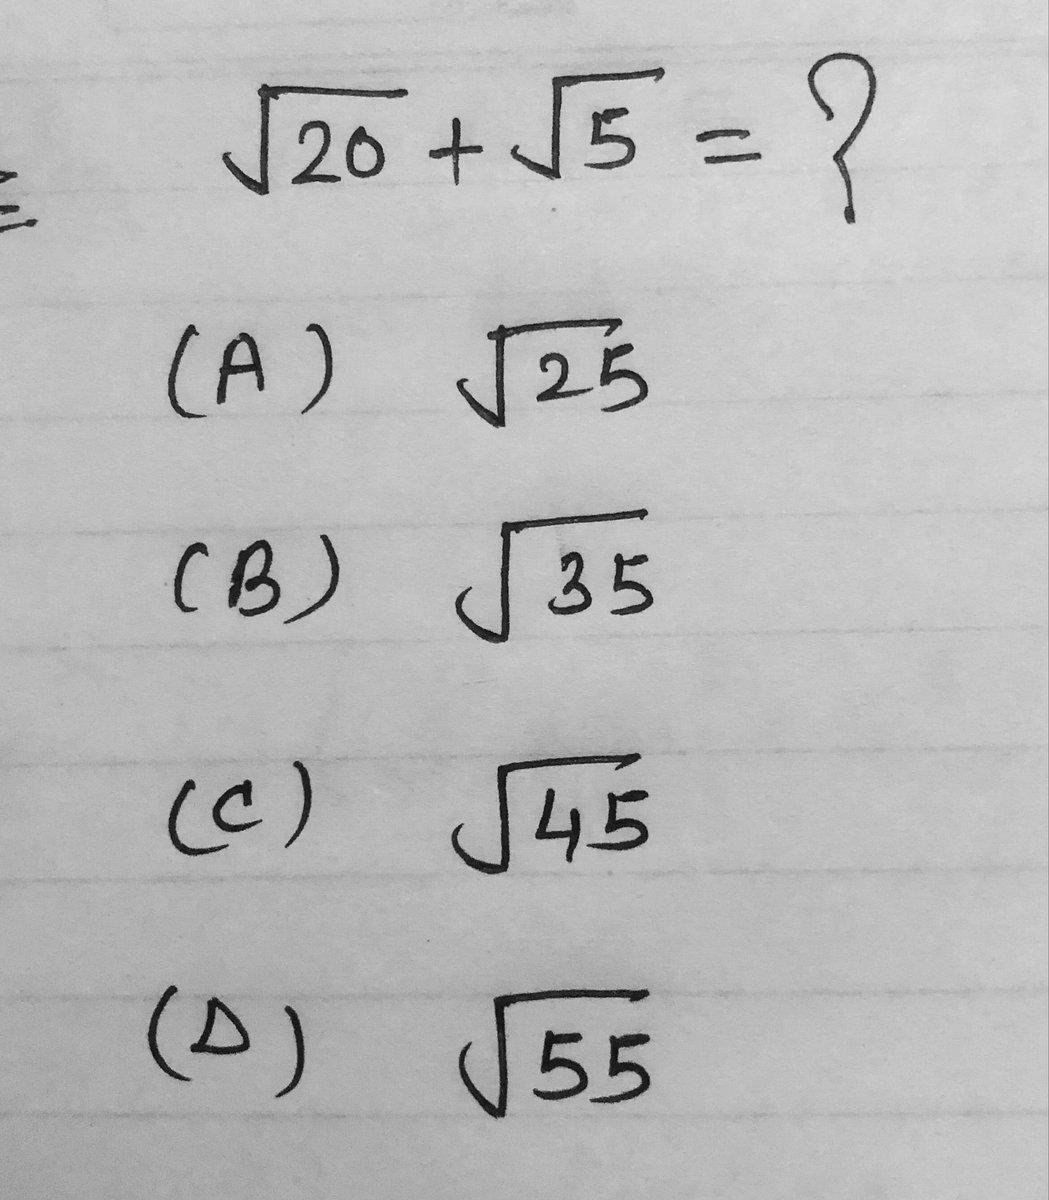 √20 + √5 = ?
(A) √25
(B) √35
(C) √45
(D) √55